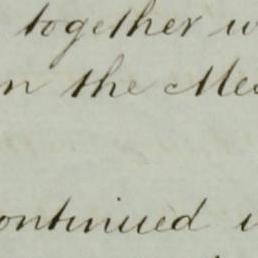 together w
n the Me
ontinued i